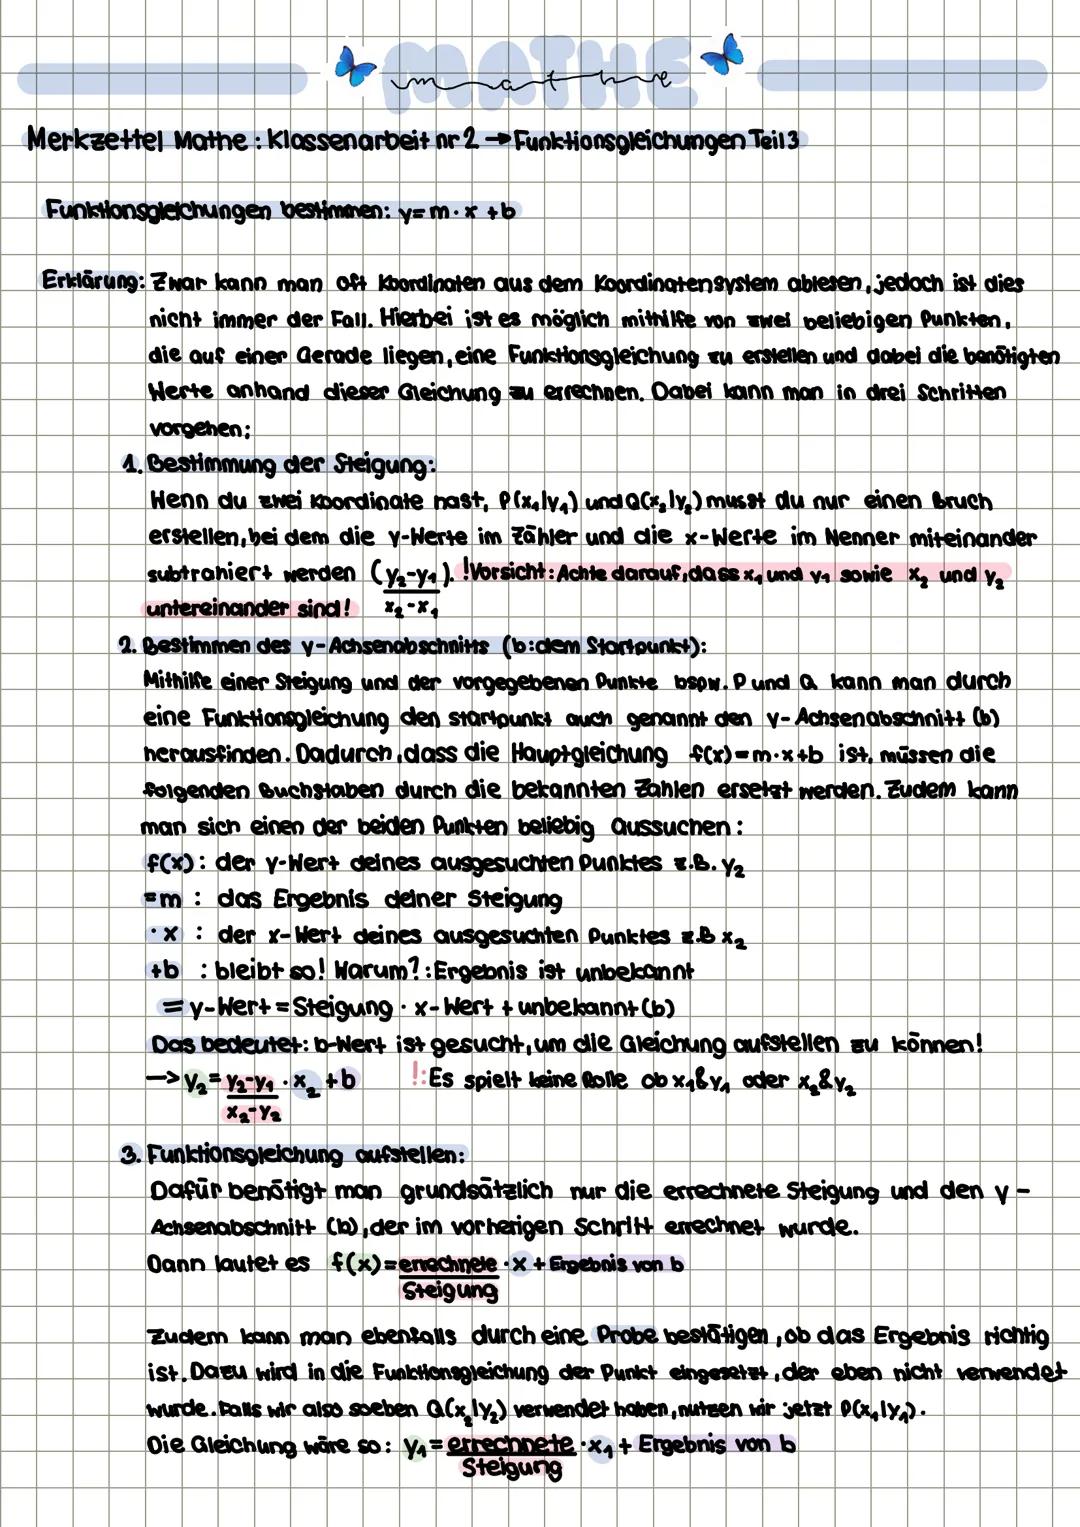 MATHE
mathe
Merkzettel Mathe: Klassenarbeit nr 2 → Funktionsgleichungen Teil 3
Funktionsgleichungen bestimmen: y= m · x + b
Erklärung: Zwar kann man oft Koordinaten aus dem Koordinatensystem ablesen, jedoch ist dies
nicht immer der Fall. Hierbei ist es möglich mithilfe von zwei beliebigen Punkten,
die auf einer Gerade liegen, eine Funktionsgleichung zu erstellen und dabei die benötigten
Werte anhand dieser Gleichung zu errechnen. Dabei kann man in drei Schritten
vorgehen:
1. Bestimmung der Steigung:
Wenn du zwei Koordinate hast, P(x₁|y₁) und Q(x₂|y₂) musst du nur einen Bruch
erstellen, bei dem die y-Werte im Zähler und die x-Werte im Nenner miteinander
subtrahiert werden (y₂-y₁). !Vorsicht: Achte darauf, dass x₁ und y₁ sowie x₂ und y₂
untereinander sind! x₂-x₁
2. Bestimmen des y-Achsenabschnitts (b: dem Startpunkt):
Mithilfe einer Steigung und der vorgegebenen Punkte bspw. P und Q kann man durch
eine Funktionsgleichung den startpunkt auch genannt den y-Achsenabschnitt (b)
herausfinden. Dadurch, dass die Hauptgleichung f(x)=m·x+b ist, müssen die
folgenden Buchstaben durch die bekannten Zahlen ersetzt werden. Zudem kann
man sich einen der beiden Punkten beliebig Aussuchen:
f(x): der y-Wert deines ausgesuchten Punktes z.B. y₂
=m : das Ergebnis deiner Steigung
·x : der x-Wert deines ausgesuchten Punktes z.B x₂
+b : bleibt so! Warum?: Ergebnis ist unbekannt
= y-Wert = Steigung · x-Wert + unbekannt (b)
Das bedeutet: b-Wert ist gesucht, um die Gleichung aufstellen zu können!
→ y₂ = y₂-y₁ · x₂ + b !: Es spielt keine Rolle ob x₁&y₁ oder x₂&y₂
x₂-y₂
3. Funktionsgleichung aufstellen:
Dafür benötigt man grundsätzlich nur die errechnete Steigung und den y-
Achsenabschnitt (b), der im vorherigen Schritt errechnet wurde.
Dann lautet es f(x)= errechnete · x + Ergebnis von b
Steigung
Zudem kann man ebenfalls durch eine Probe bestätigen, ob das Ergebnis richtig
ist. Dazu wird in die Funktionsgleichung der Punkt eingesetzt, der eben nicht verwendet
wurde. Falls wir also soeben Q(x₂|y₂) verwendet haben, nutzen wir jetzt P(x₁|y₁).
Die Gleichung wäre so: y₁ = errechnete · x₁ + Ergebnis von b
Steigung